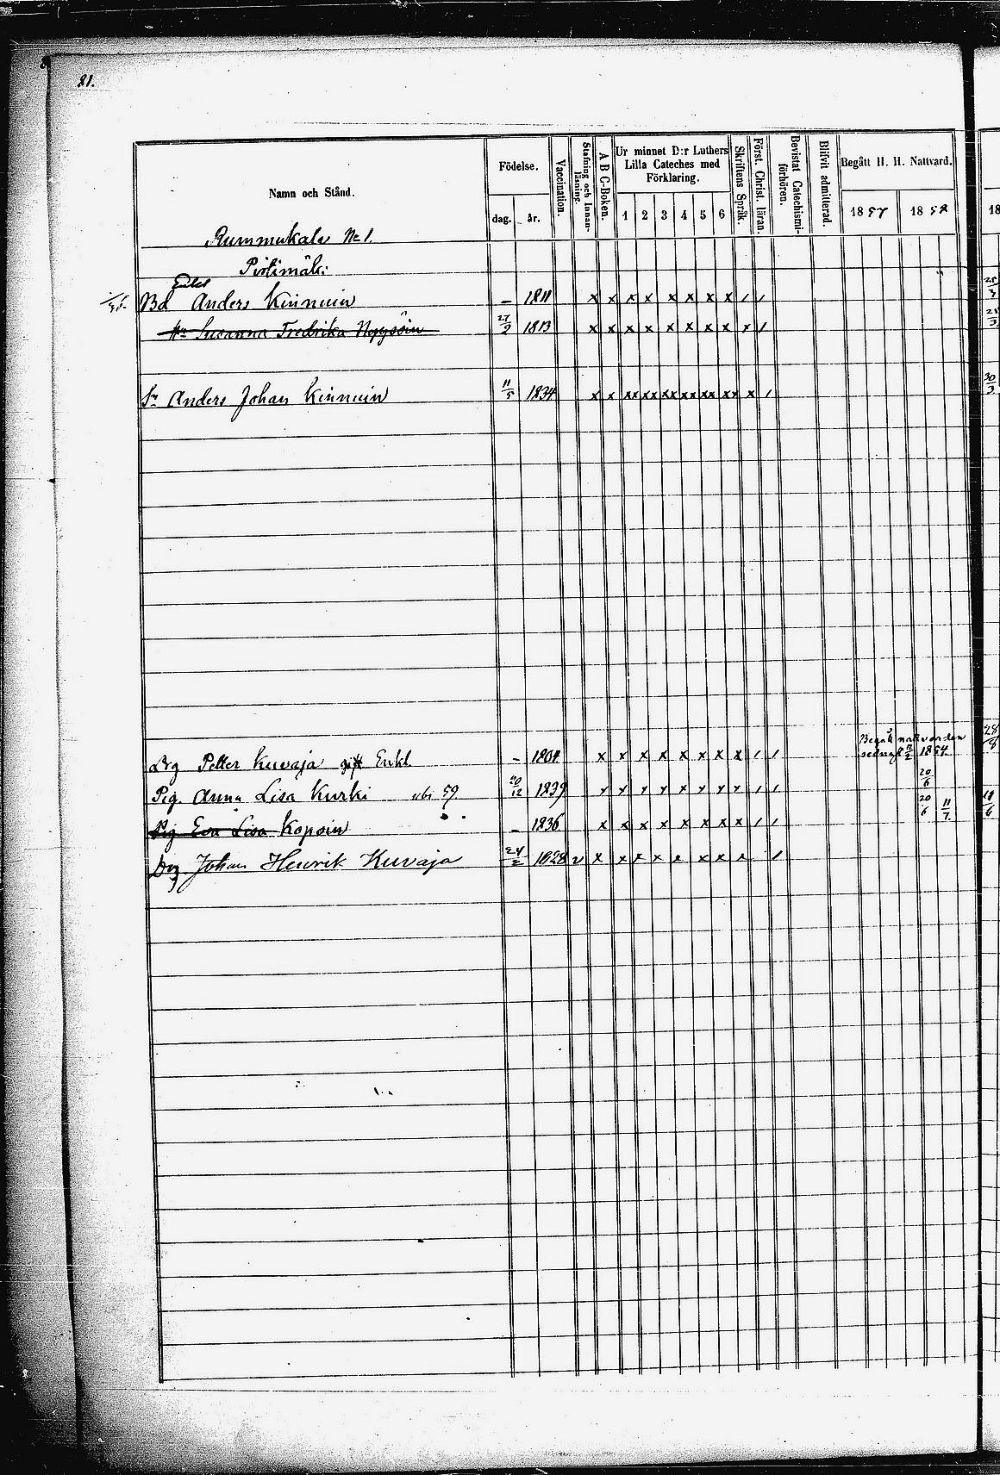 81.
Namn och Stånd. Födelse. dag. år. Vaccination. Stafning och Innanläsning. A B C-Boken. Ur minnet D:r Luthers Lilla Cateches med Förklaring. 1 2 3 4 5 6 Skriftens Språk. Först. Christ. läran. Bevistat Catechismi-förhören. Blifvit admitterad. Begått H. H. Nattvard. 1857 1858 18
Rummukala No 1.
Enkl
Bd Anders Kinnuin – 1811 x x x x x x x x / / 25/3
Hu Susanna Fredrika 27/9 1813 x x x x x x x x x /
Sn Anders Johan Kinnuin 11/5 1834 x x xx xx xx xx xx xx x / 30/3
Begått nattvarden 28/8
Drg Petter Kuvaja Enkl – 1801 x x x x x x x x / / 1854
Pig. Anna Lisa Kurki 59 20/12 1839 x x x x x x x x / / 20/6
Pig Eva Lisa Kopoin – 1836 x x x x x x x x / / 20/6 11/7
Drg Johan Henrik Kuvaja 24/2 1828 v x x x x x x x x /